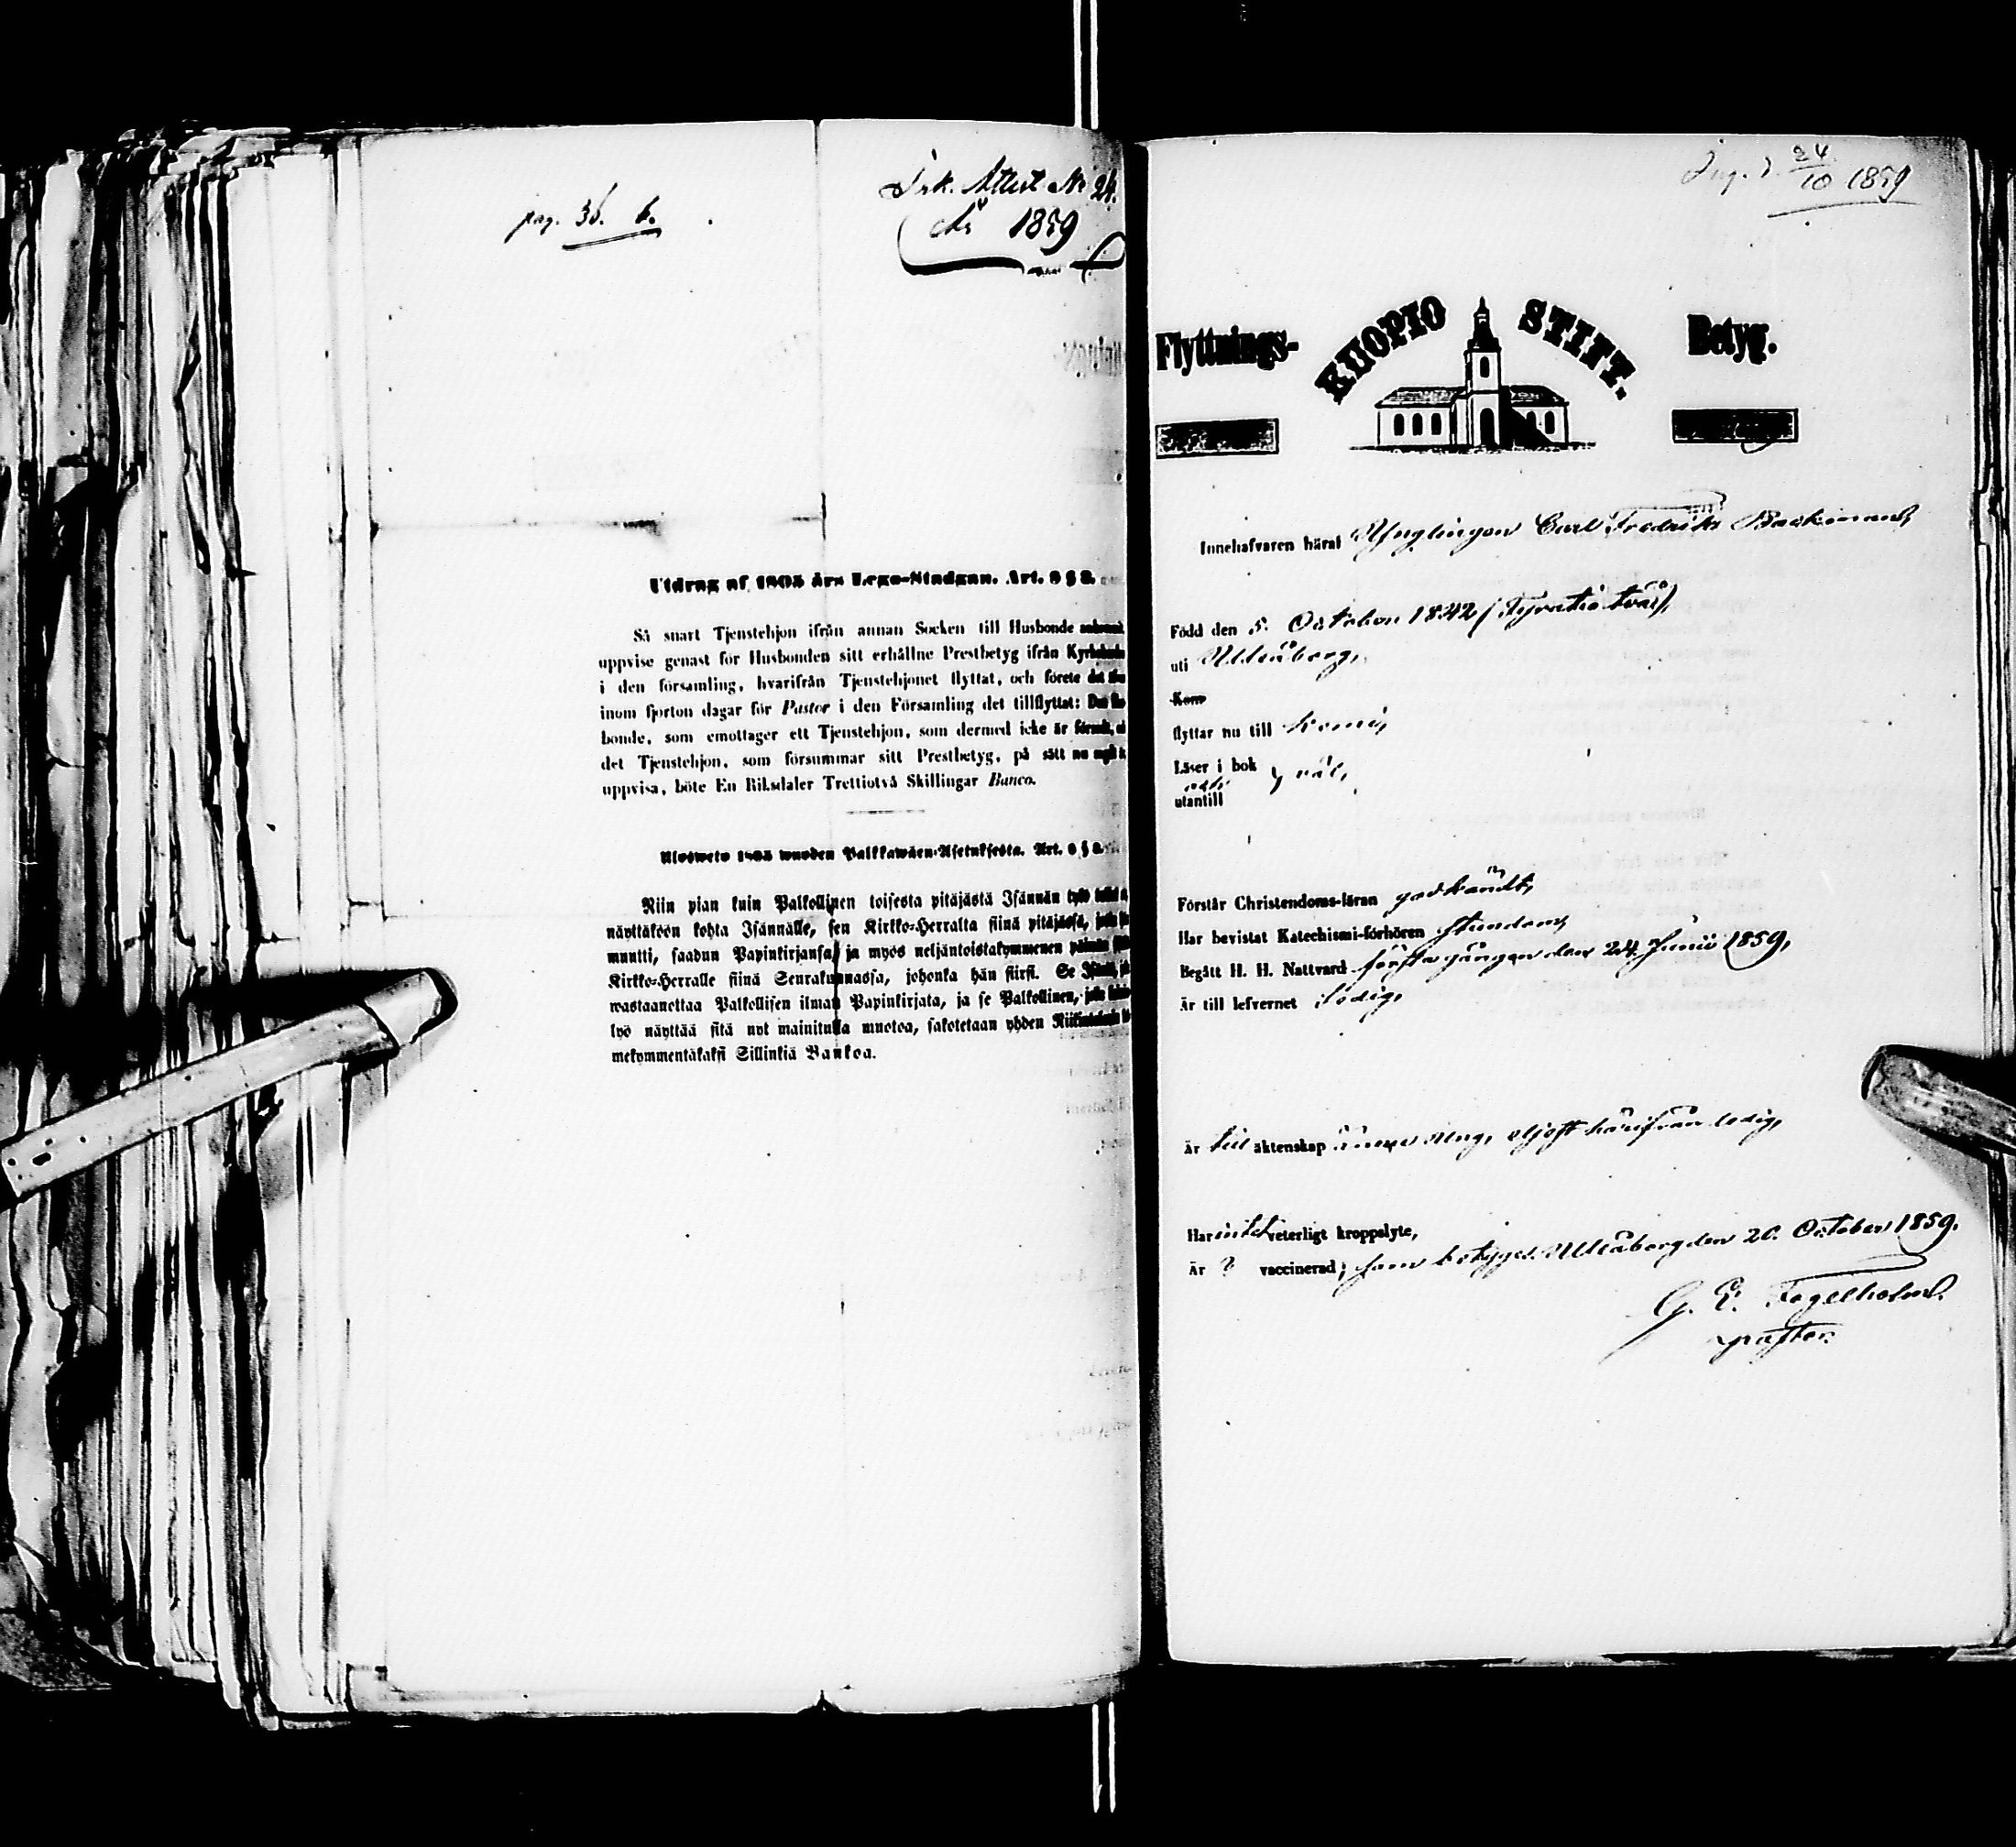 pag. 36. b.
Ink. Attest No 24.
år 1859
Utdrag af 1805 års Lego-Stadgan. Art. 6 § 8.
Så snart Tjenstehjon ifrån annan Socken till Husbonde ankommit,
uppvise genast för Husbonden sitt erhållne Prestbetyg ifrån
i den församling, hvarifrån Tjenstehjonet flyttat, och förete det
inom fjorton dagar för Pastor i den Församling det tillflyttat:
bonde, som emottager ett Tjenstehjon, som dermed icke är försedt,
det Tjenstehjon, som försummar sitt Prestbetyg, på sätt nu
uppvisa, böte En Riksdaler Trettiotvå Skillingar Banco.
Ulosweto 1805 wuoden Palkkawäen-Asetuksesta. Art. 6 § 8.
Niin pian kuin Palkollinen toisesta pitäjästä Isännän työ
näyttäköön kohta Isännälle, sen Kirkko-Herralta siinä pitäjässä,
muutti, saadun Papinkirjansa, ja myös neljäntoistakymmenen päiwän
Kirkko-Herralle siinä Seurakunnassa, johonka hän siirsi. Se
wastaanottaa Palkollisen ilman Papinkirjata, ja se Palkollinen,
lyö näyttää sitä nyt mainitulla muotoa, sakotetaan yhden
mekymmentäkaksi Sillinkiä Bankoa.
Ing. d. 24/10 1859
Flyttnings- KUOPIO STIFT. Betyg.
Innehafvaren häraf Ynglingen Carl Fredrik Backman,
Född den 5. October 1842 (Fyratio två),
uti Uleåborg,
Kom
flyttar nu till Kemi,
Läser i bok
och } väl,
utantill
Förstår Christendoms-läran godkändt,
Har bevistat Katechismi-förhören stundom,
Begått H. H. Nattvard första gången den 24 Junii 1859,
Är till lefvernet sedig,
Är till äktenskap ännu ung, eljest härifrån ledig,
Har intet veterligt kroppslyte,
Är ? vaccinerad; som betygar. Uleåborg den 20. October 1859.
G. E. Fogelholm.
pastor.